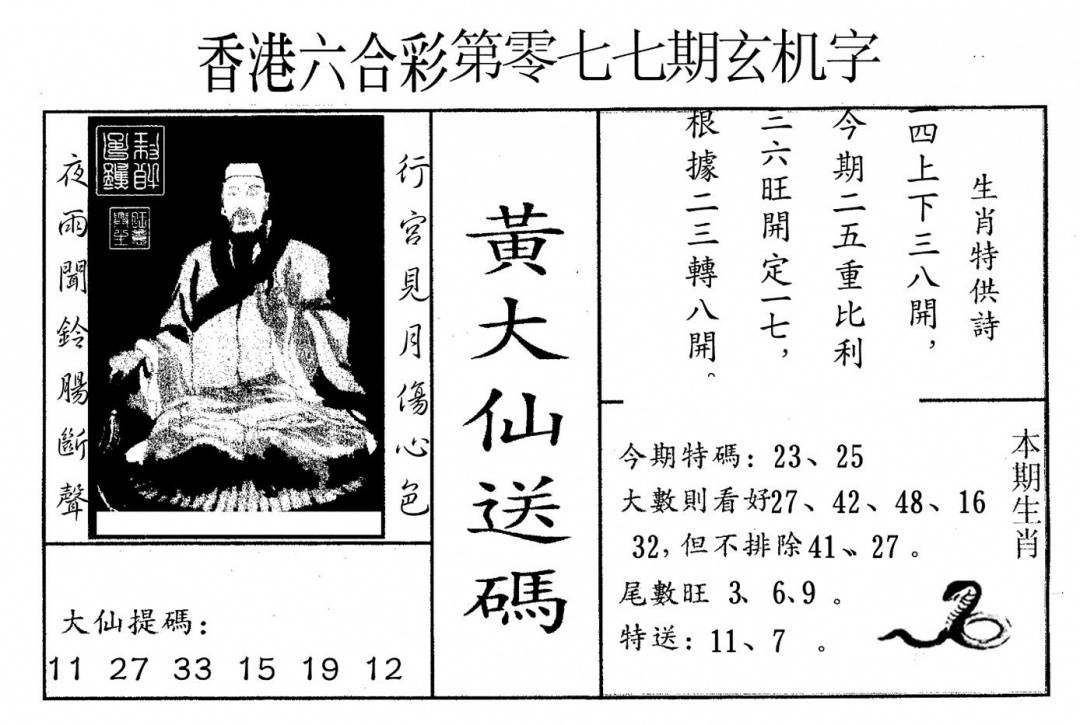 香港六合彩第零七七期玄机字
行宮見月傷心色
夜雨聞鈴腸斷聲
黃大仙送碼
生肖特供詩
一四上下三八開，
今期二五重比利
三六旺開定一七，
根據二三轉八開。
大仙提碼：
11 27 33 15 19 12
本期生肖
今期特碼：23、25
大數則看好27、42、48、16
32，但不排除41、27。
尾數旺 3、6、9。
特送：11、7 。